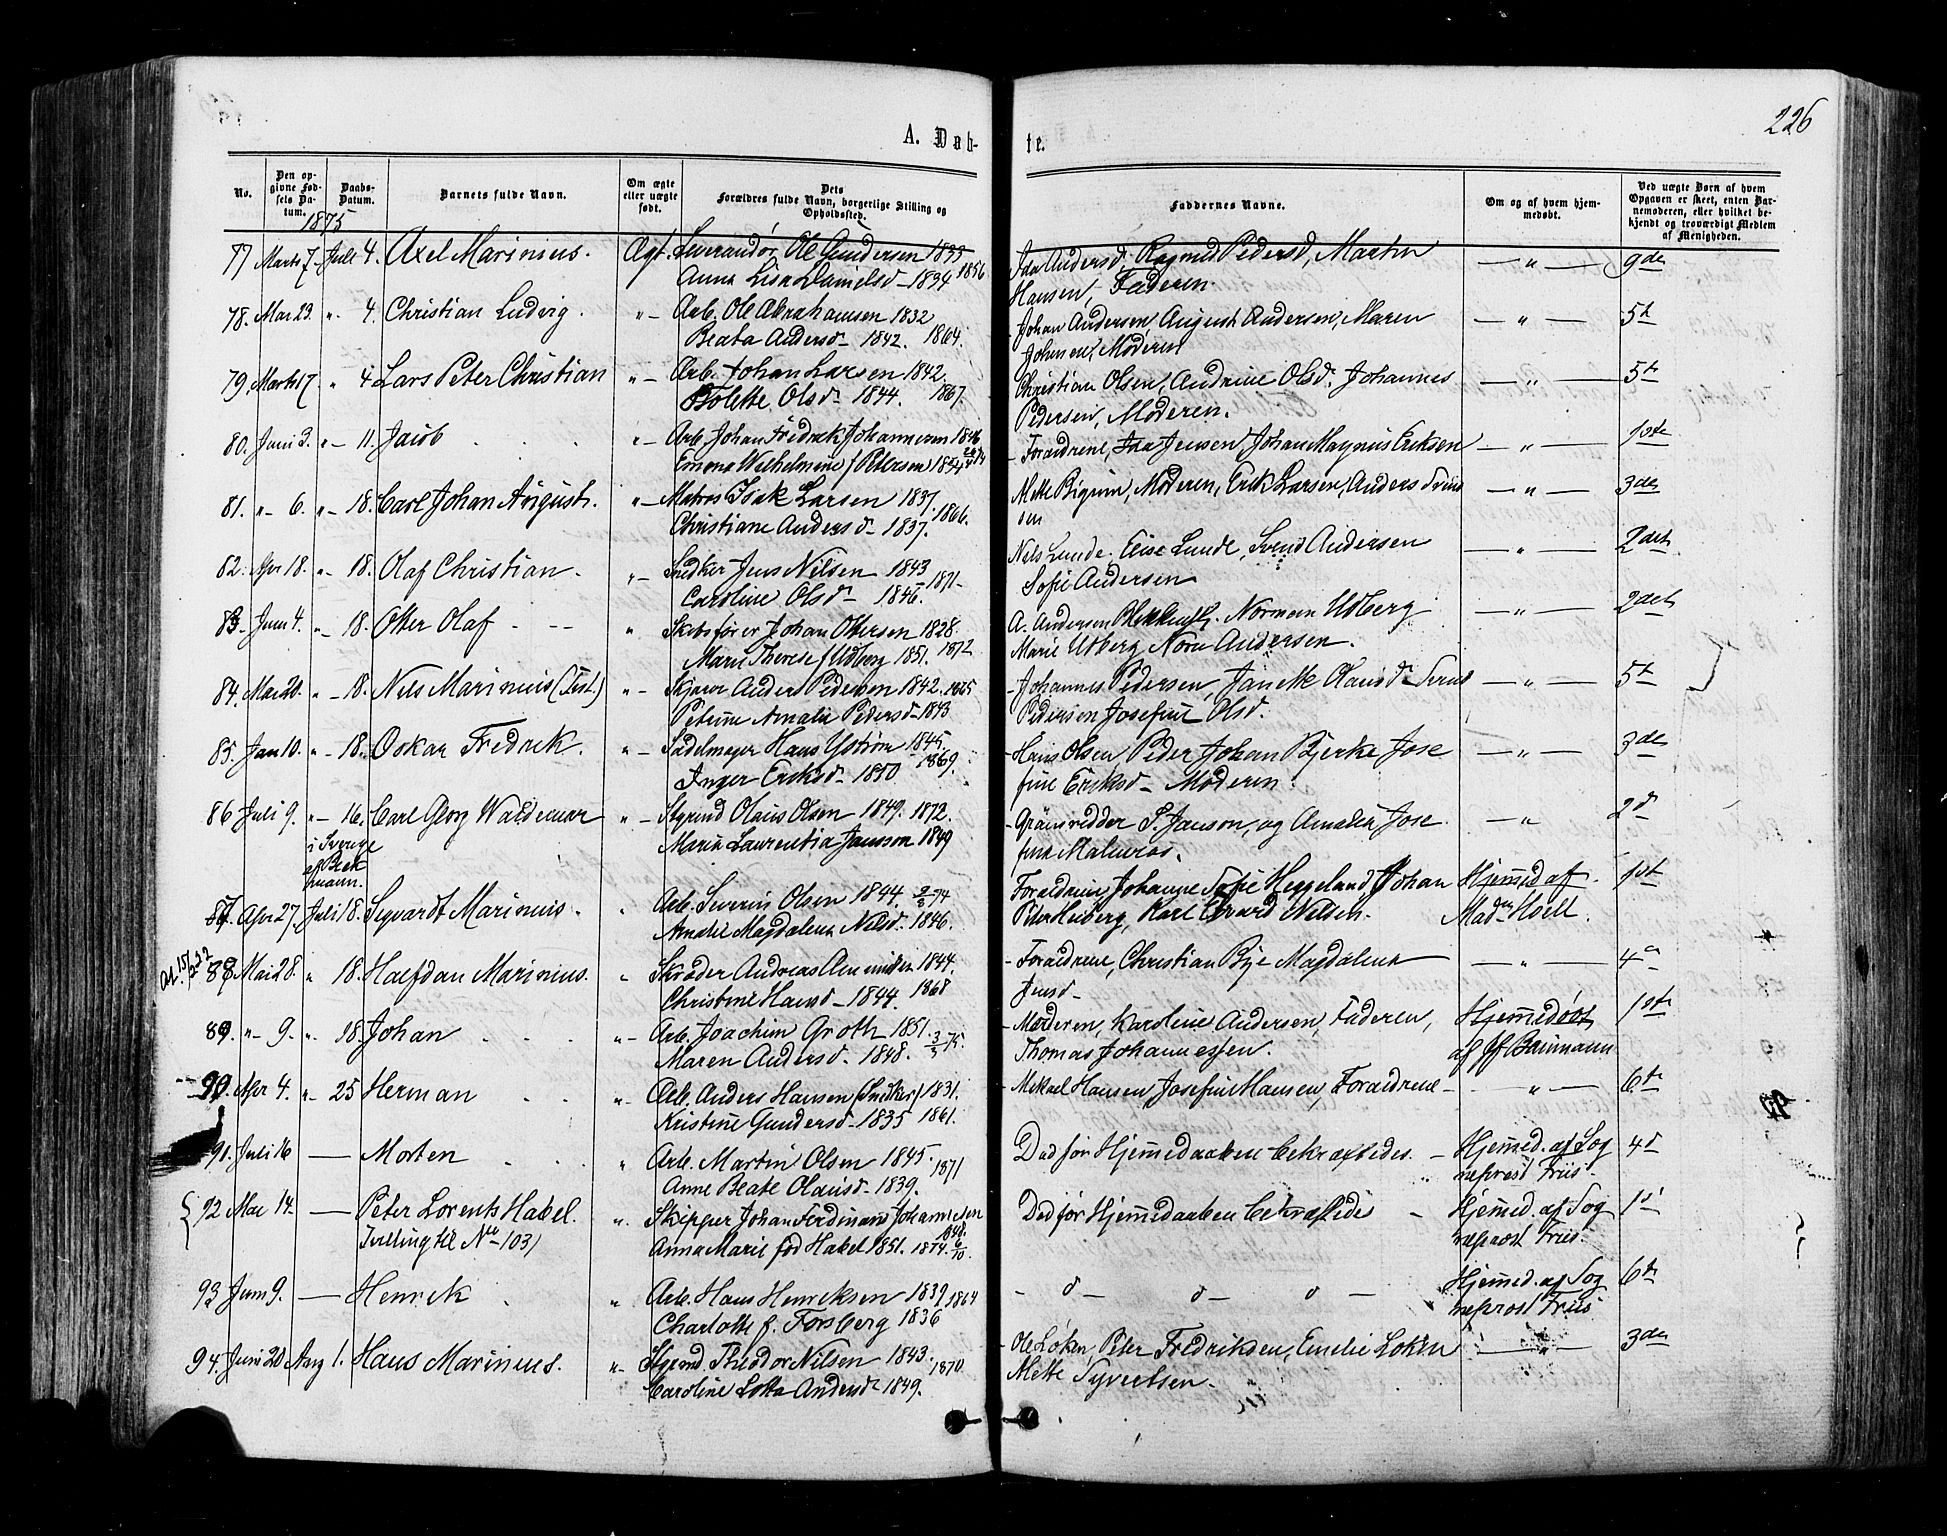 226
A. Døb-
te.
No.
Den op-
givne Fød-
sels Da-
tum.
Daabs-
Datum.
Barnets fulde Navn.
Om ægte
eller uægte
født.
Dets
Forældres fulde Navn, borgerlige Stilling og
Opholdssted.
Faddernes Navne.
Om og af hvem hjem-
medøbt.
Ved uægte Børn af hvem
Opgaven er skeet, enten Bar-
nemoderen, eller hvilket be-
kjendt og troværdigt Medlem
af Menigheden.
1875
77 Marts 7. Juli 4. Axel Marinius. Ægt. Leverandør Ole Gundersen 1833
Anna Lisa Danielsd 1834 1856
Ida Andersd. Ragnild Pedersd, Martin
Hansen, Faderen. — " — 9de
78. Mai 23. " 4. Christian Ludvig. " — Arb. Ole Abrahamsen 1832
Beata Andersd 1842. 1864.
Johan Andersen, August Andersen, Maren
Johnsen, Moderen — " — 5t
79. Marts 17. " 4 Lars Peter Christian " — Arb. Johan Larsen 1842
Bolette Olsd 1844. 1867.
Christian Olsen, Andrine Olsd. Johannes
Pedersen, Moderen. — " — 5t
80. Juni 3. " 11. Jacob " — Arb. Johan Fredrek Johannesen 1846
Emma Wilhelmine f. Petersen 1854
Foraldrene, Ida Jensen, Johan Magnus Eriksen — " — 1ste
81. " 6. " 18. Carl Johan August. " — Matros Isak Larsen 1837.
Christiane Andersd 1837. 1866.
Mette Bigrim, Moderen, Erik Larsen, Anders Svend
sen — " — 3de
82. Apr 18. " 18. Olaf Christian. " — Snedker Jens Nilsen 1843
Caroline Olsd 1846. 1871
Nels Lunde. Elise Lunde, Svend Andersen
Sofie Andersen — " — 2det
83. Juni 4. " 18. Otter Olaf " Skibsfører Johan Ottersen 1828.
Marie Therese f. Udberg 1851. 1872
A. Andersen Norman Udberg
Marie Udberg Nora Andersen. — " — 2det
84. Mai 20. " 18. Nels Marinius (Tvil.) " — Skjærer Anders Pedersen 1842. 1865
Petrine Amalie Pedersd 1843
Johannes Pedersen, Janette Olausd Svend
Pedersen Josefine Olsd. — " — 5t
85. Jan 10. " 18. Oskar Fredrek. " — Sadelmager Hans Ystrøm 1845.
Inger Eriksd 1850 1869.
Hans Olsen, Peder Johan Bjerke, Jose
fine Eriksd Moderen. — " — 3de
86 Juli 9. " — 16. Carl Georg Waldemar " — Styrmd Olaus Olsen 1849. 1872.
i Sverige
af Bek
mann.
Maria Laurentia Jansson 1849
Grænsridder P. Janson, og Amalia, Jose
fina Malmros. — " 2d
87. Apr 27. Juli 18. Sigvardt Marinius. " Arb. Severin Olsen 1844.
Amalie Magdalena Nilsd. 1846.
Foraldrene, Johanne Sofie Heggeland, Johan
Peter Heiberg, Karl Edvard Nilsen. Hjemed af
Mad Hoell. 1st
88 Mai 28. " 18. Halfdan Marinius. " Skræder Andreas Amundsen 1844.
Christine Hansd 1844. 1868
Foraldrene, Christian Bye Magdalena
Jensd — " — 4
89 " 9. " 18. Johan " — Arb. Joachim Groth 1851.
Maren Andersd. 1848. 3/3 75.
Moderen, Karoline Andersen, Faderen,
Thomas Johannessen. Hjemmedøbt
af Jf Baumann 1ste
90. Apr 4. " 25 Herman " Arb. Anders Hansen (Snedker) 1831.
Kristine Gundersd 1835 1861.
Mekael Hansen, Josefine Hansen, Foraldrene — " — 6te
91. Juli 16 — Morten " Arb. Martin Olsen 1845.
Anne Beate Olausd 1839. 1871
Død før Hjemmedaaben bekræftedes. Hjemed. af Sog
neprest Friis. 4d
92 Mai 14. — Peter Lorents Habel.
Tvilling til No 103)
" Skipper Johan Ferdinand Johannesen 1848.
Anna Marie fød Habel 1851. 1874.
Død før Hjemmedaaben bekræftedes Hjemed. af Sog
neprost Friis. 1st
93 Juni 9. — Henrik " Arb. Hans Henreksen 1839
Charlotte f. Forsberg 1836 1864
d d d Hjemmed. af Sog
neprost Friis 6te
94. Juni 20 Aug 1. Hans Marinius. " Styrmd Theodor Nilsen 1843.
Caroline Lotta Andersd 1849. 1870.
Ole Løken, Peter Fredriksen, Emelie Løken
Mette Syvertsen. — " — 3de